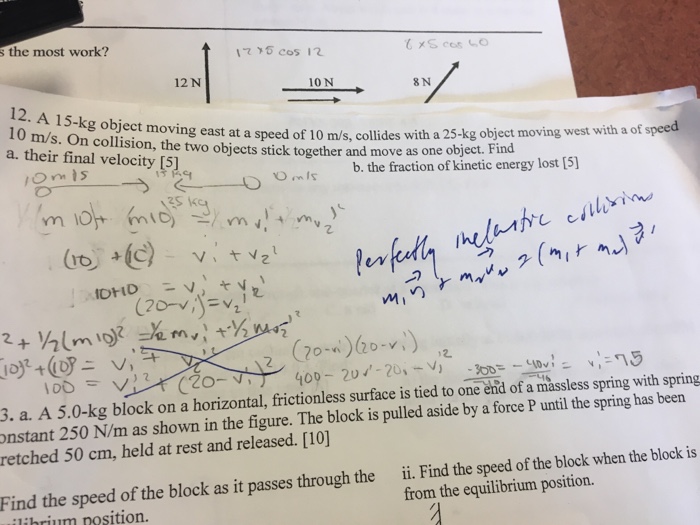 s the most work?
12 x 5 cos 12
8 x 5 cos 60
12 N
10 N
8 N
12. A 15-kg object moving east at a speed of 10 m/s, collides with a 25-kg object moving west with a of speed
10 m/s. On collision, the two objects stick together and move as one object. Find
a. their final velocity [5]
b. the fraction of kinetic energy lost [5]
10m/s
15 kg
25 kg
10m/s
(m 10)+ (m10) = m v₁' + m v₂'
(10) + (10) = v₁' + v₂'
10+10 = v₁' + v₂'
(20-v₁')=v₂'
Perfectly inelastic collisions
m₁v₁ + m₂v₂ = (m₁+ m₂) v'
2 + ½(m10)² = ½ m v₁'² + ½ m v₂'²
(10)² + (10)² = v₁'² + v₂'²
100 = v₁'² + (20-v₁')²
(20-v₁')(20-v₁')
400 - 20v' - 20v₁' - v₁'²
-300= -40v₁' = v₁' = 75
3. a. A 5.0-kg block on a horizontal, frictionless surface is tied to one end of a massless spring with spring
onstant 250 N/m as shown in the figure. The block is pulled aside by a force P until the spring has been
retched 50 cm, held at rest and released. [10]
Find the speed of the block as it passes through the
ilibrium position.
ii. Find the speed of the block when the block is
from the equilibrium position.